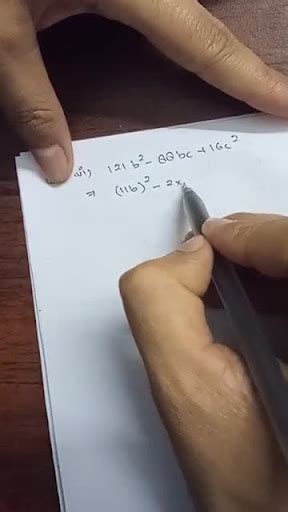 vii) 121b² - 88bc + 16c²
⇒ (11b)² - 2×